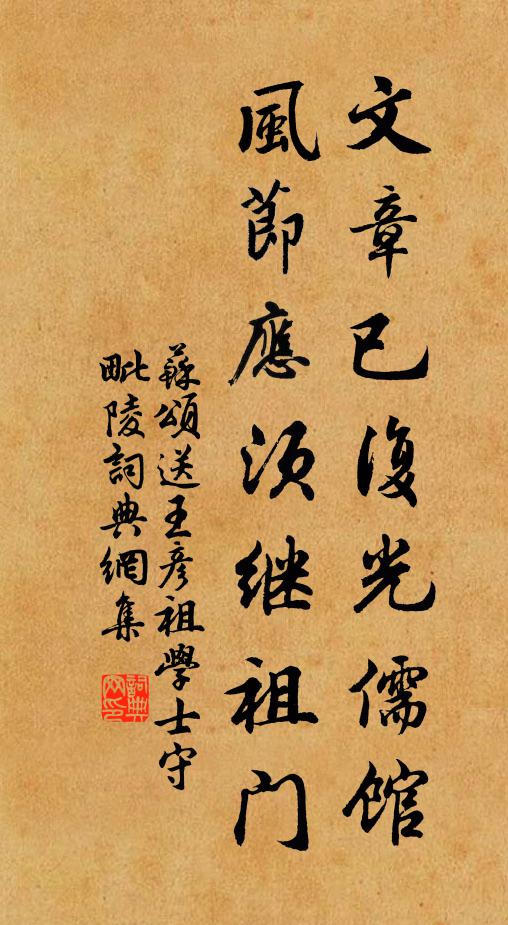 文章已復光儒館
風節應須継祖門
蘇頌送王彥祖學士守
毗陵詞典網集
詞典網印